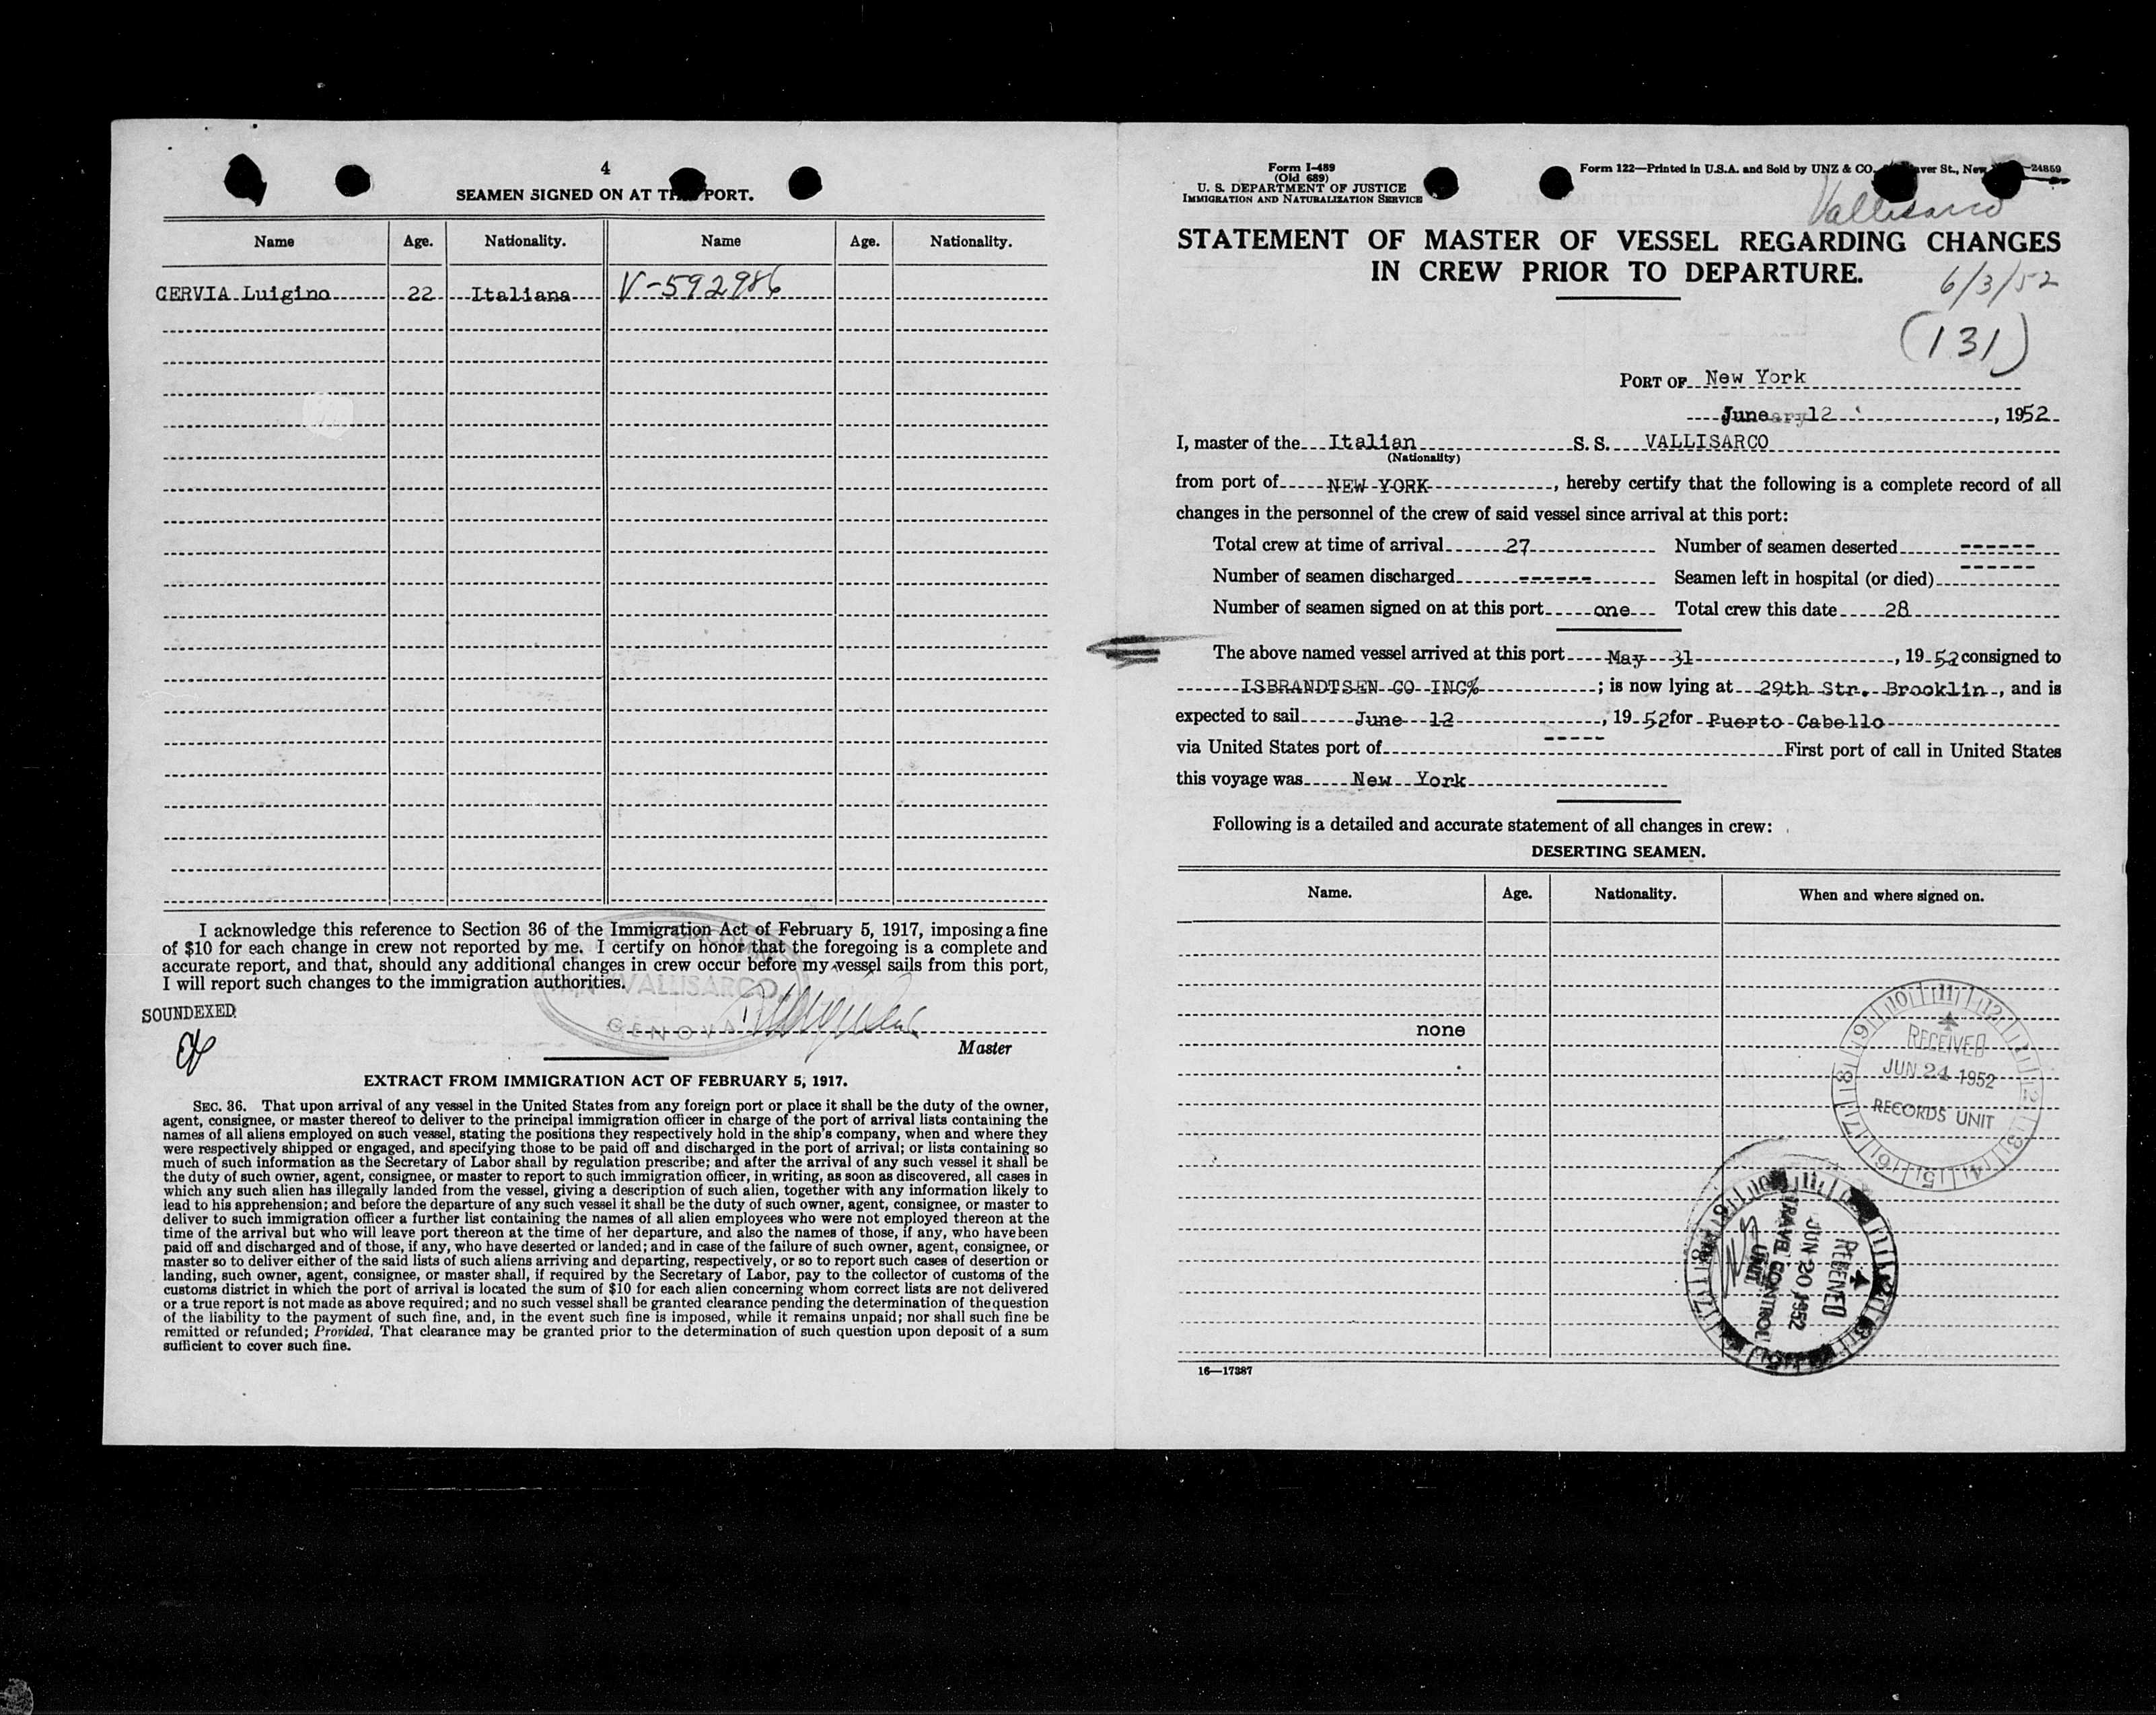 4
SEAMEN SIGNED ON AT PORT.
Name Age. Nationality. Name Age. Nationality.
CERVIA Luigino 22 Italiana V-592986
I acknowledge this reference to Section 36 of the Immigration Act of February 5, 1917, imposing a fine
of $10 for each change in crew not reported by me. I certify on honor that the foregoing is a complete and
accurate report, and that, should any additional changes in crew occur before my vessel sails from this port,
I will report such changes to the immigration authorities.
VALLISARCO
GENOVA
SOUNDEXED
Master
EXTRACT FROM IMMIGRATION ACT OF FEBRUARY 5, 1917.
SEC. 36. That upon arrival of any vessel in the United States from any foreign port or place it shall be the duty of the owner,
agent, consignee, or master thereof to deliver to the principal immigration officer in charge of the port of arrival lists containing the
names of all aliens employed on such vessel, stating the positions they respectively hold in the ship's company, when and where they
were respectively shipped or engaged, and specifying those to be paid off and discharged in the port of arrival; or lists containing so
much of such information as the Secretary of Labor shall by regulation prescribe; and after the arrival of any such vessel it shall be
the duty of such owner, agent, consignee, or master to report to such immigration officer, in writing, as soon as discovered, all cases in
which any such alien has illegally landed from the vessel, giving a description of such alien, together with any information likely to
lead to his apprehension; and before the departure of any such vessel it shall be the duty of such owner, agent, consignee, or master to
deliver to such immigration officer a further list containing the names of all alien employees who were not employed thereon at the
time of the arrival but who will leave port thereon at the time of her departure, and also the names of those, if any, who have been
paid off and discharged and of those, if any, who have deserted or landed; and in case of the failure of such owner, agent, consignee, or
master so to deliver either of the said lists of such aliens arriving and departing, respectively, or so to report such cases of desertion or
landing, such owner, agent, consignee, or master shall, if required by the Secretary of Labor, pay to the collector of customs of the
customs district in which the port of arrival is located the sum of $10 for each alien concerning whom correct lists are not delivered
or a true report is not made as above required; and no such vessel shall be granted clearance pending the determination of the question
of the liability to the payment of such fine, and, in the event such fine is imposed, while it remains unpaid; nor shall such fine be
remitted or refunded; Provided, That clearance may be granted prior to the determination of such question upon deposit of a sum
sufficient to cover such fine.
Form I-489
(Old 689)
U. S. DEPARTMENT OF JUSTICE
IMMIGRATION AND NATURALIZATION SERVICE
Form 122—Printed in U.S.A. and Sold by UNZ & CO. St., New 24859
Vallisarco
STATEMENT OF MASTER OF VESSEL REGARDING CHANGES
IN CREW PRIOR TO DEPARTURE.
6/3/52
(131)
PORT OF New York
June 12, 1952
I, master of the Italian S. S. VALLISARCO
(Nationality)
from port of NEW YORK, hereby certify that the following is a complete record of all
changes in the personnel of the crew of said vessel since arrival at this port:
Total crew at time of arrival 27 Number of seamen deserted ------
Number of seamen discharged ------ Seamen left in hospital (or died) ------
Number of seamen signed on at this port one Total crew this date 28
The above named vessel arrived at this port May 31, 1952 consigned to
ISBRANDTSEN CO INC%; is now lying at 29th Str. Brooklin, and is
expected to sail June 12, 1952 for Puerto Cabello
via United States port of ----- First port of call in United States
this voyage was New York
Following is a detailed and accurate statement of all changes in crew:
DESERTING SEAMEN.
Name. Age. Nationality. When and where signed on.
none
RECEIVED
JUN 24 1952
RECORDS UNIT
RECEIVED
JUN 20 1952
TRAVEL CONTROL
UNIT
16—17387